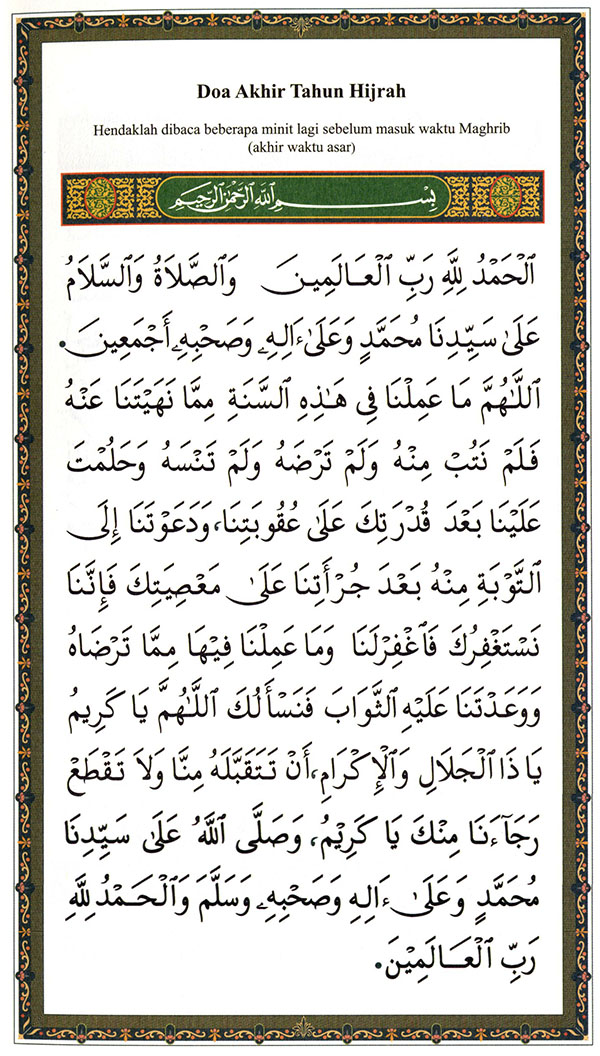 Doa Akhir Tahun Hijrah
Hendaklah dibaca beberapa minit lagi sebelum masuk waktu Maghrib
(akhir waktu asar)
بِسْمِ اللَّهِ الرَّحْمَٰنِ الرَّحِيمِ
اَلْحَمْدُ لِلَّهِ رَبِّ الْعَالَمِينَ وَالصَّلَاةُ وَالسَّلَامُ
عَلَىٰ سَيِّدِنَا مُحَمَّدٍ وَعَلَىٰ ءَالِهِۦ وَصَحْبِهِۦ أَجْمَعِينَ.
اللَّهُمَّ مَا عَمِلْنَا فِى هَٰذِهِ السَّنَةِ مِمَّا نَهَيْتَنَا عَنْهُ
فَلَمْ نَتُبْ مِنْهُ وَلَمْ تَرْضَهُ وَلَمْ تَنْسَهُ وَحَلُمْتَ
عَلَيْنَا بَعْدَ قُدْرَتِكَ عَلَىٰ عُقُوبَتِنَا، وَدَعَوْتَنَا إِلَى
التَّوْبَةِ مِنْهُ بَعْدَ جُرْأَتِنَا عَلَىٰ مَعْصِيَتِكَ فَإِنَّنَا
نَسْتَغْفِرُكَ فَاغْفِرْلَنَا وَمَا عَمِلْنَا فِيهَا مِمَّا تَرْضَاهُ
وَوَعَدْتَنَا عَلَيْهِ الثَّوَابَ فَنَسْأَلُكَ اللَّهُمَّ يَا كَرِيمُ
يَا ذَا الْجَلَالِ وَالْإِكْرَامِ، أَنْ تَتَقَبَّلَهُ مِنَّا وَلَا تَقْطَعْ
رَجَآءَنَا مِنْكَ يَا كَرِيْمُ، وَصَلَّى اللَّهُ عَلَىٰ سَيِّدِنَا
مُحَمَّدٍ وَعَلَىٰ ءَالِهِ وَصَحْبِهِۦ وَسَلَّمَ وَالْحَمْدُ لِلَّهِ
رَبِّ الْعَالَمِيْنَ.